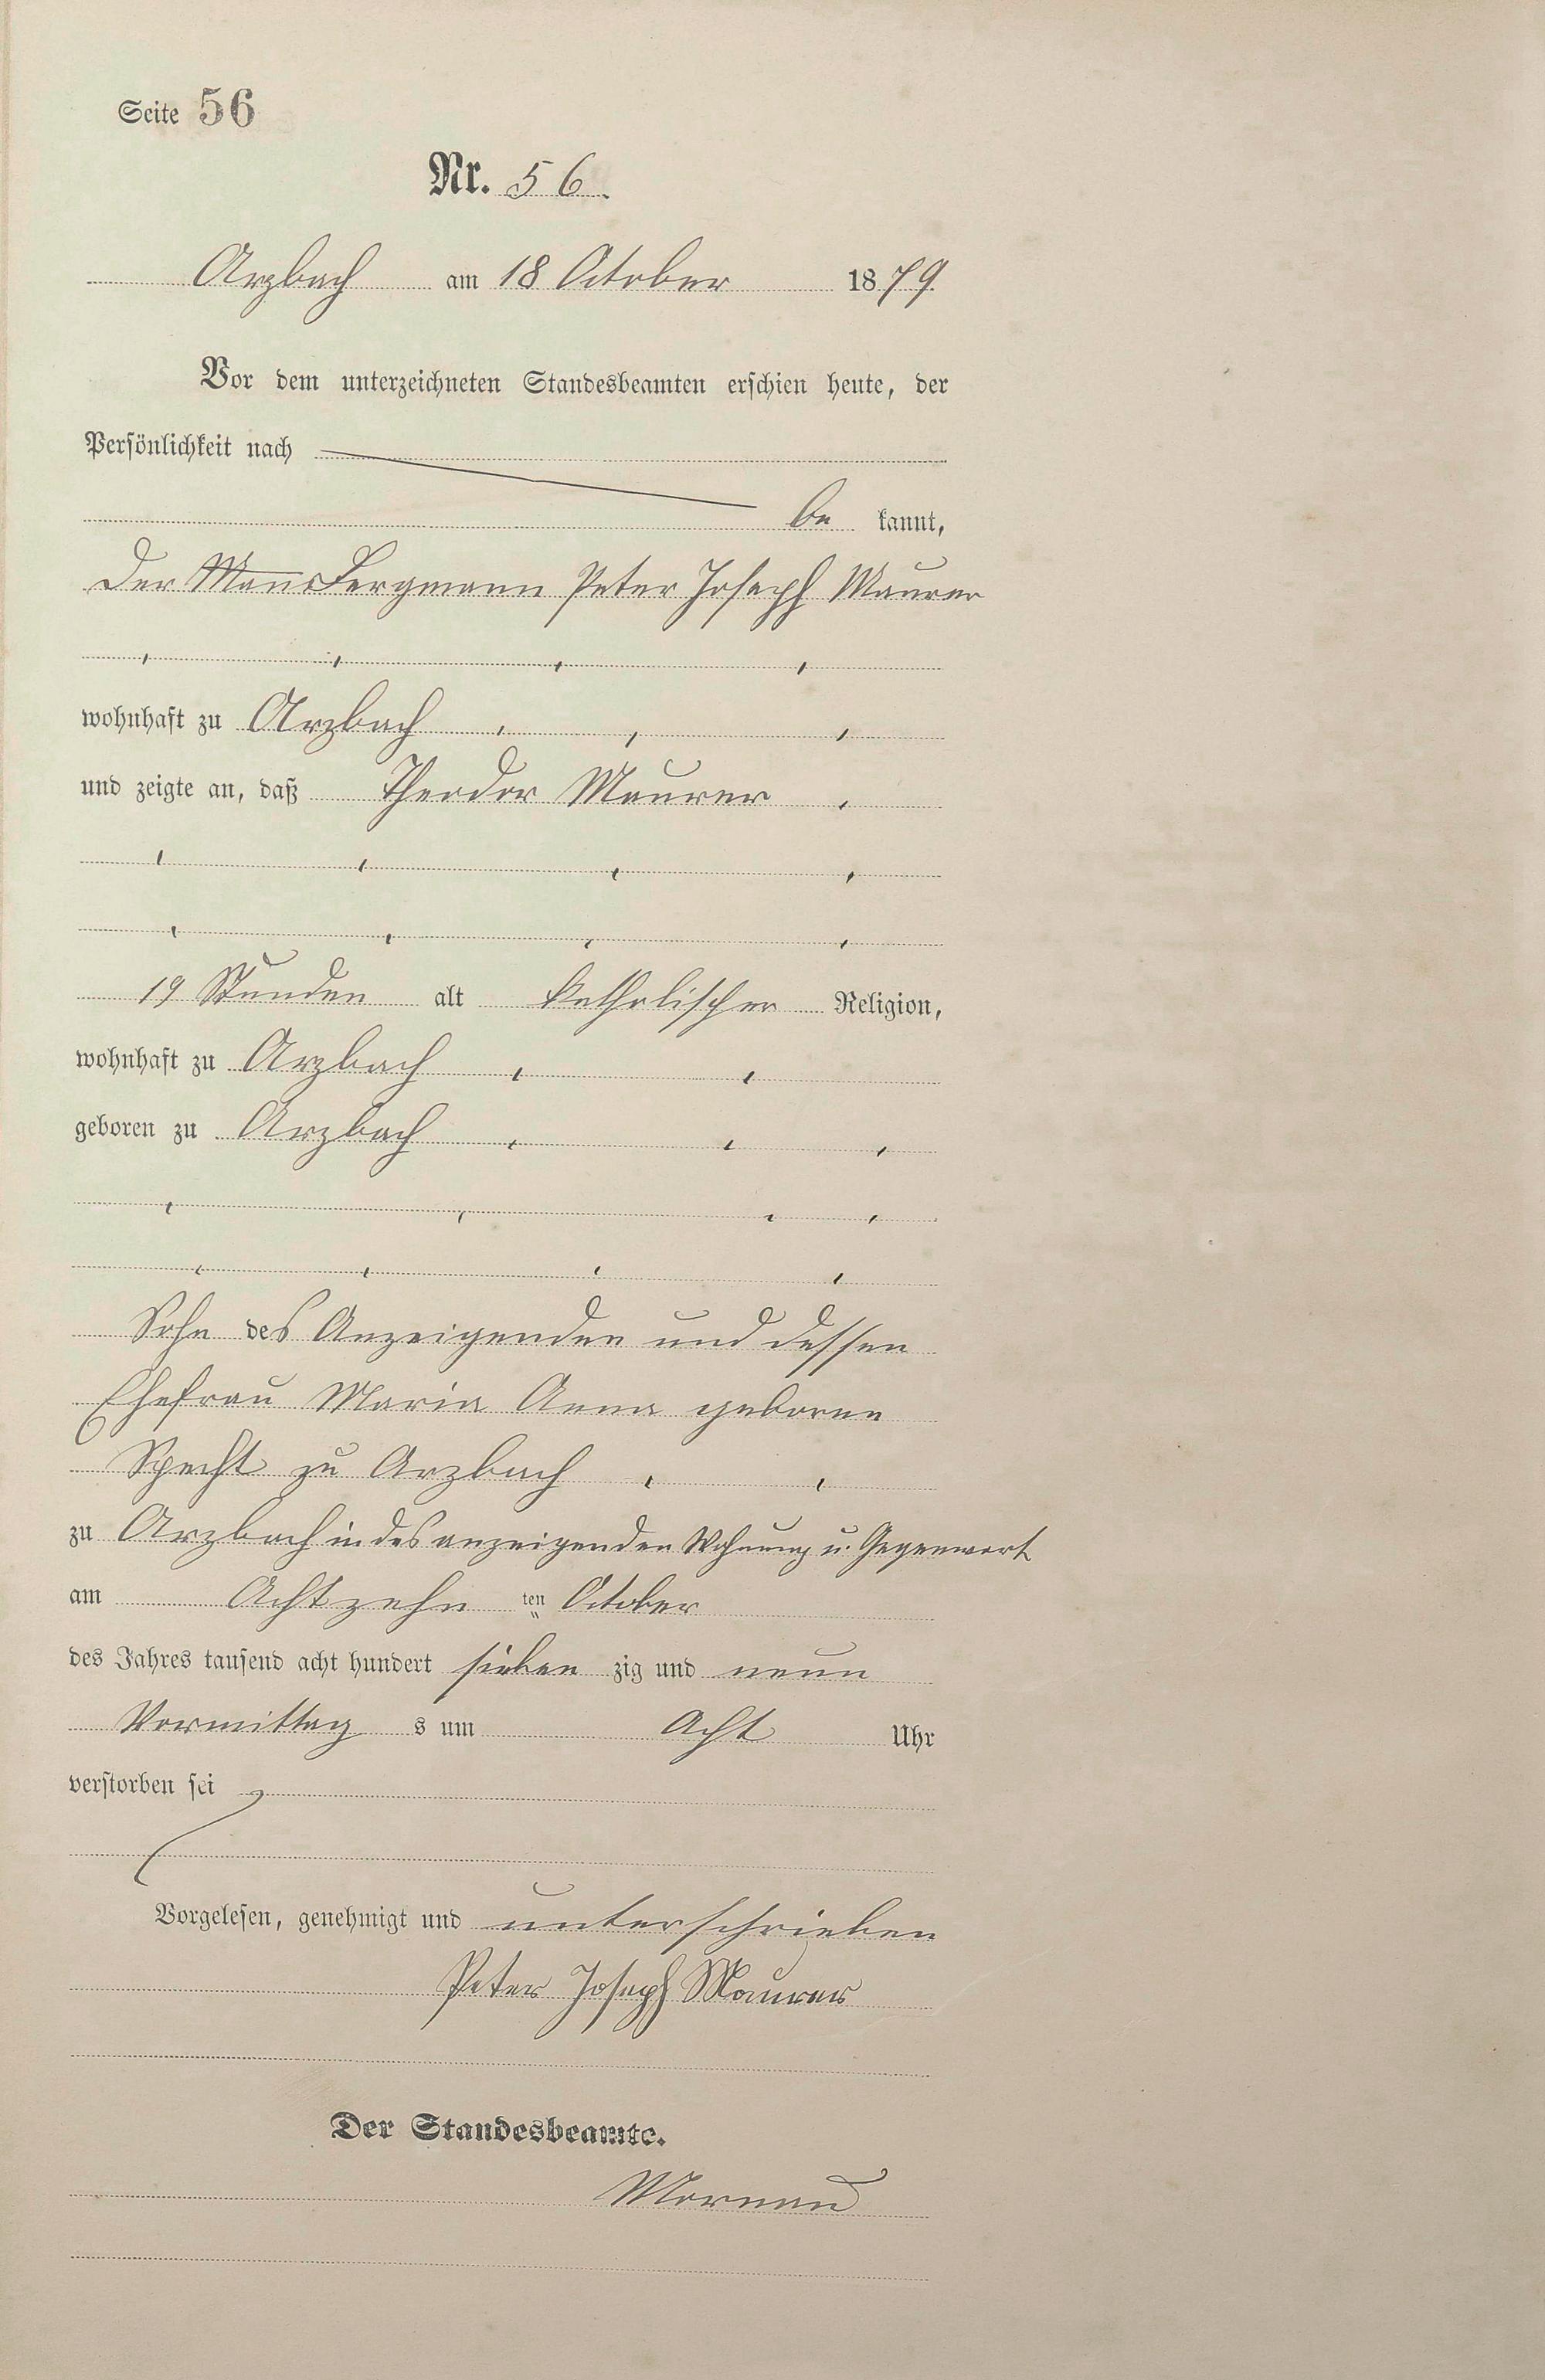 Seite 56
Nr. 56.
Arzbach am 18 October 1879.
Vor dem unterzeichneten Standesbeamten erschien heute, der
Persönlichkeit nach
be kannt,
der Bergmann Peter Joseph Maurer
wohnhaft zu Arzbach
und zeigte an, daß Theodor Maurer
19 Stunden alt katholischer Religion,
wohnhaft zu Arzbach
geboren zu Arzbach
Sohn des Anzeigenden und dessen
Ehefrau Maria Anna geborene
Specht zu Arzbach
zu Arzbach in des anzeigenden Wohnung u. Gegenwart
am Achtzehn ten October
des Jahres tausend acht hundert sieben zig und neun
Vormittag s um Acht Uhr
verstorben sei
Vorgelesen, genehmigt und unterschrieben
Peter Joseph Maurer
Der Standesbeamte.